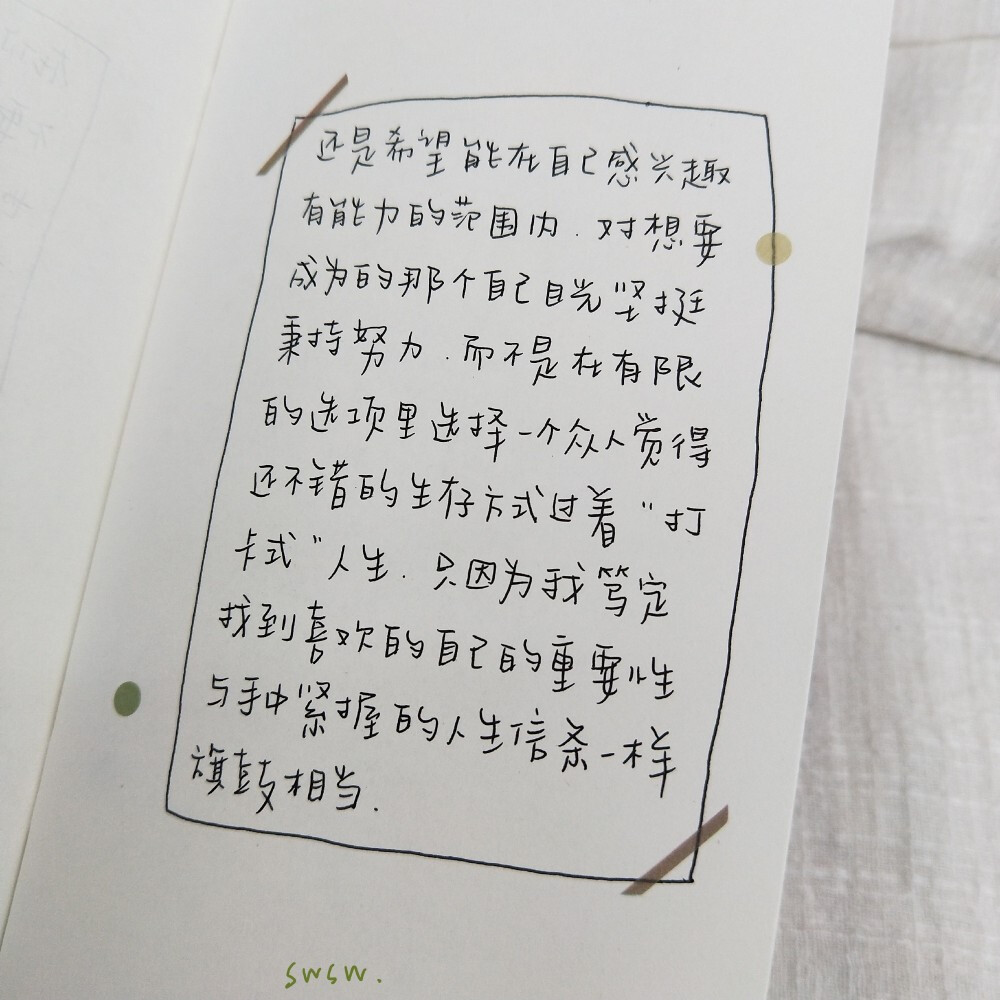 还是希望能在自己感兴趣
有能力的范围内.对想要
成为的那个自己目光坚挺
秉持努力.而不是在有限
的选项里选择一个众人觉得
还不错的生存方式过着“打
卡式”人生.只因为我笃定
找到喜欢的自己的重要性
与手中紧握的人生信条一样
旗鼓相当.
swsw.